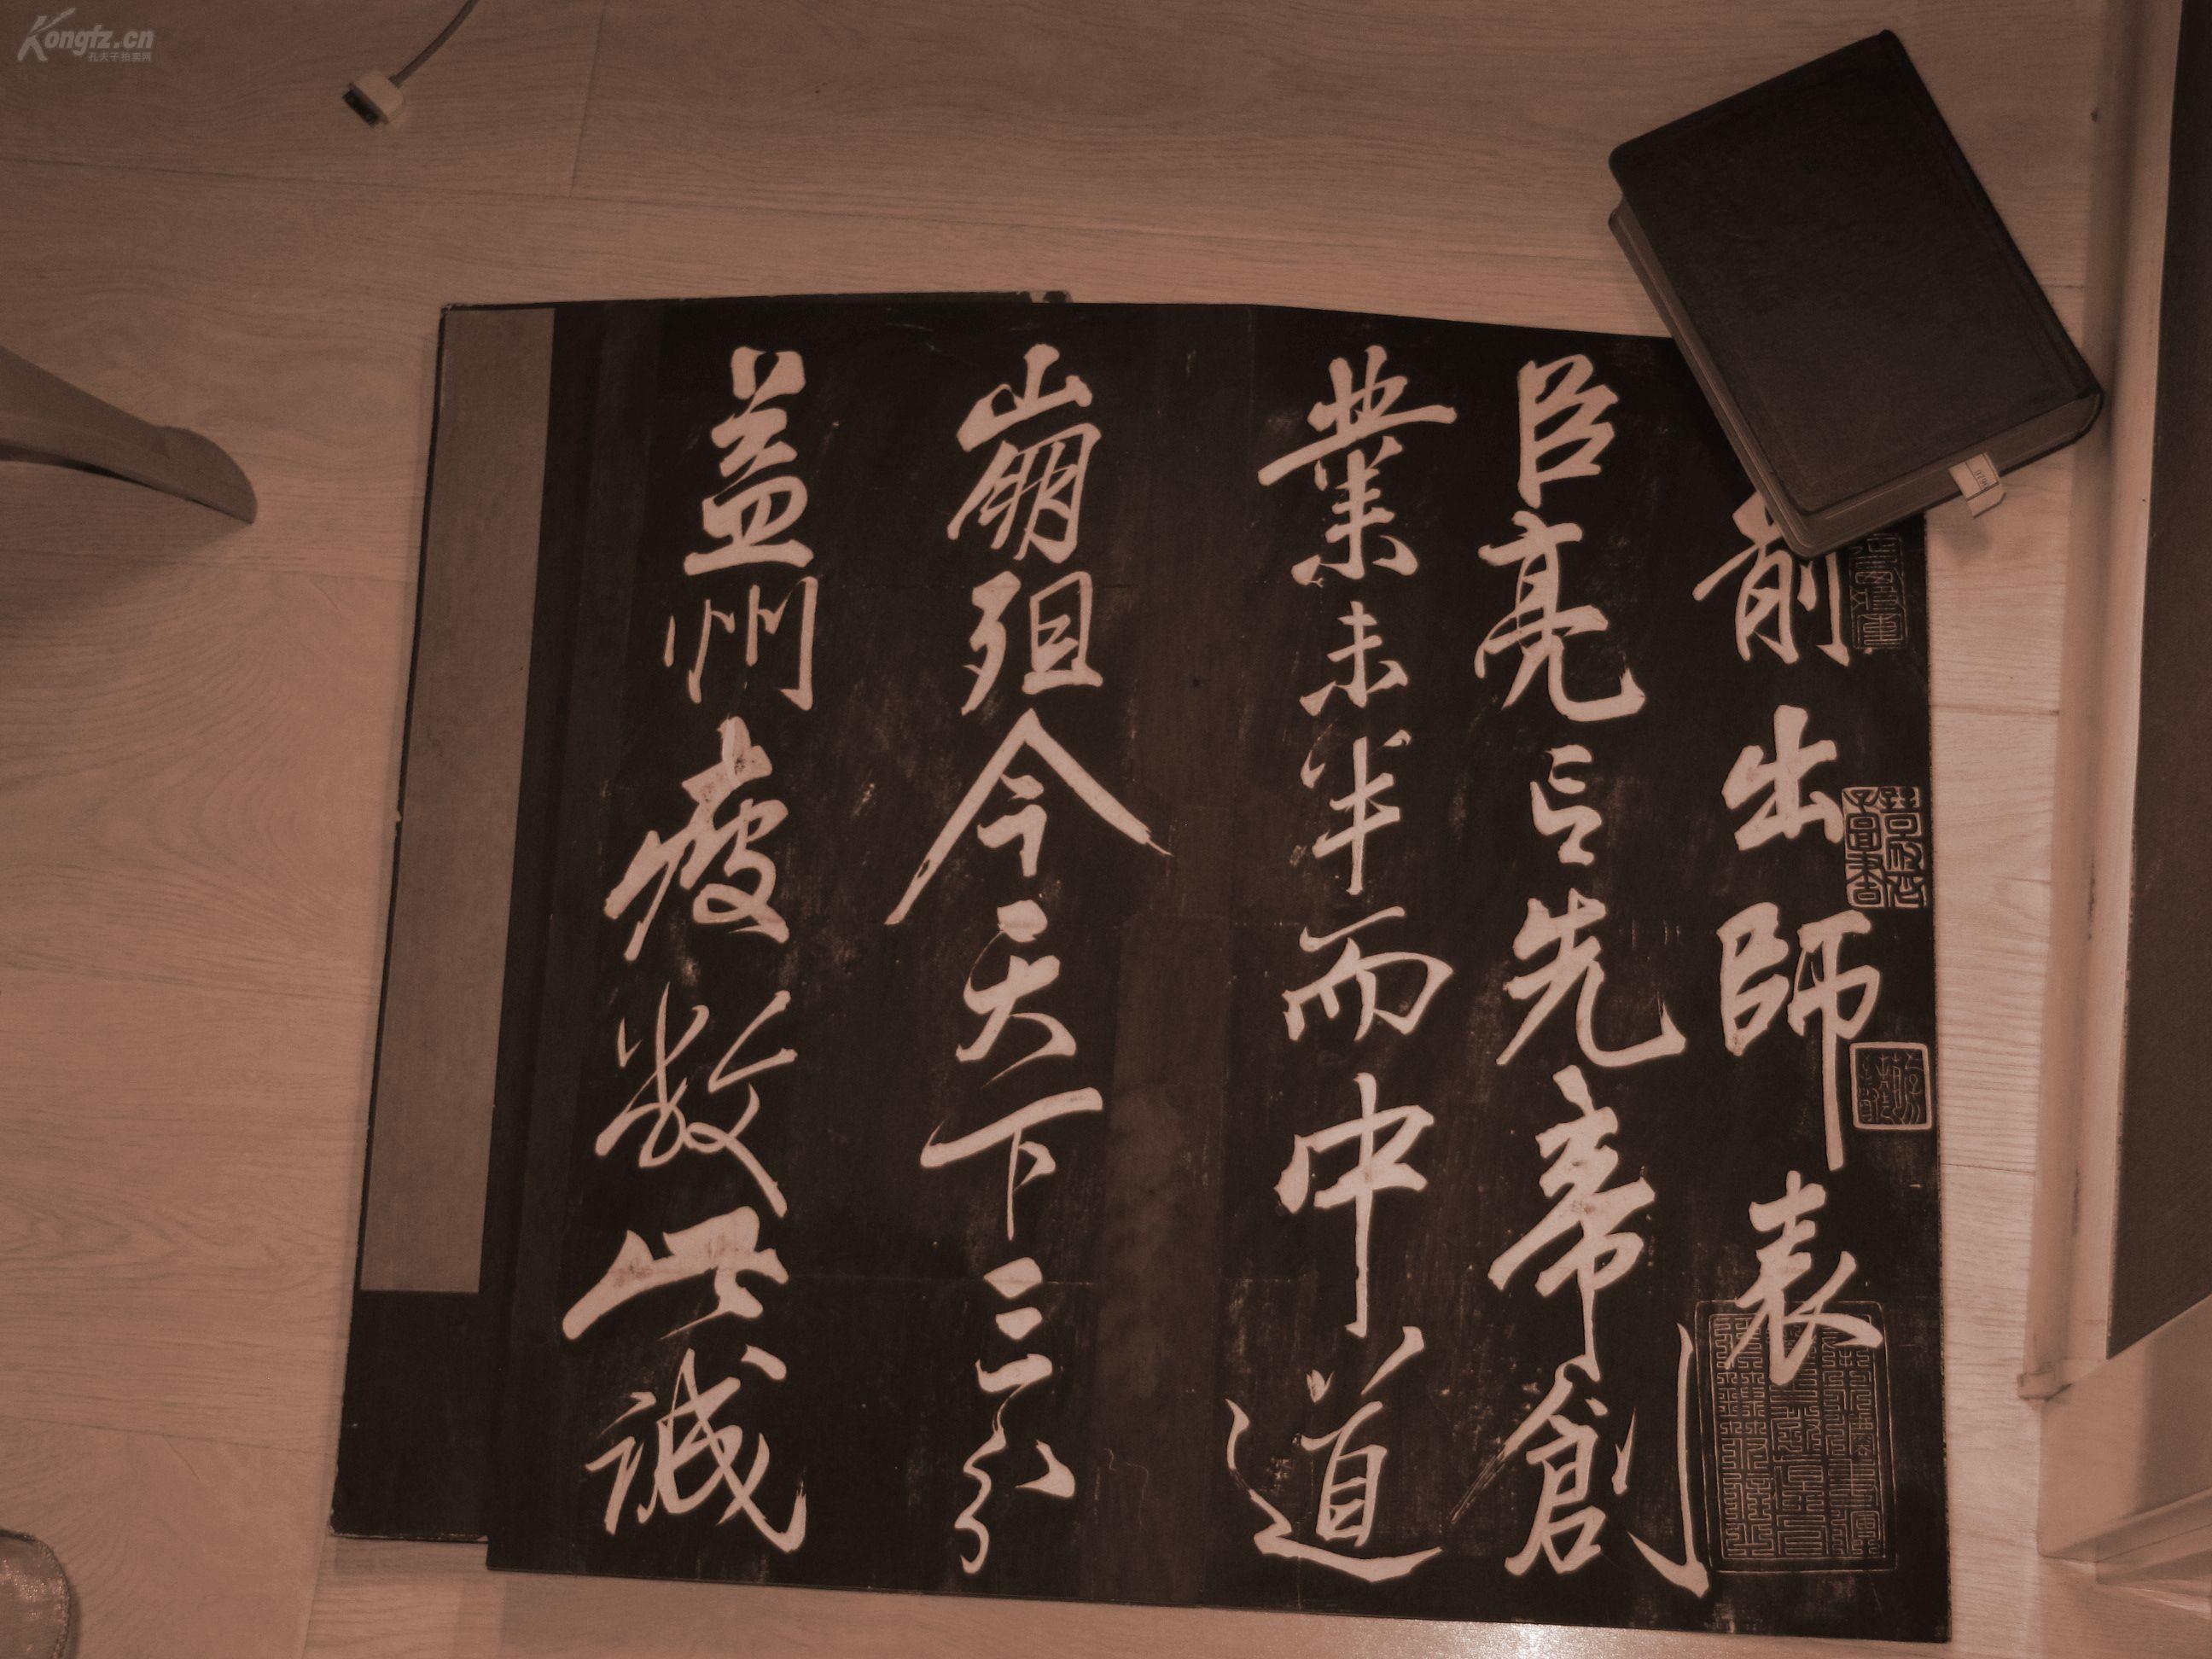 前出師表
臣亮言先帝創
業未半而中道
崩殂今天下三分
益州疲敝此誠
Kongfz.cn
孔夫子拍卖网